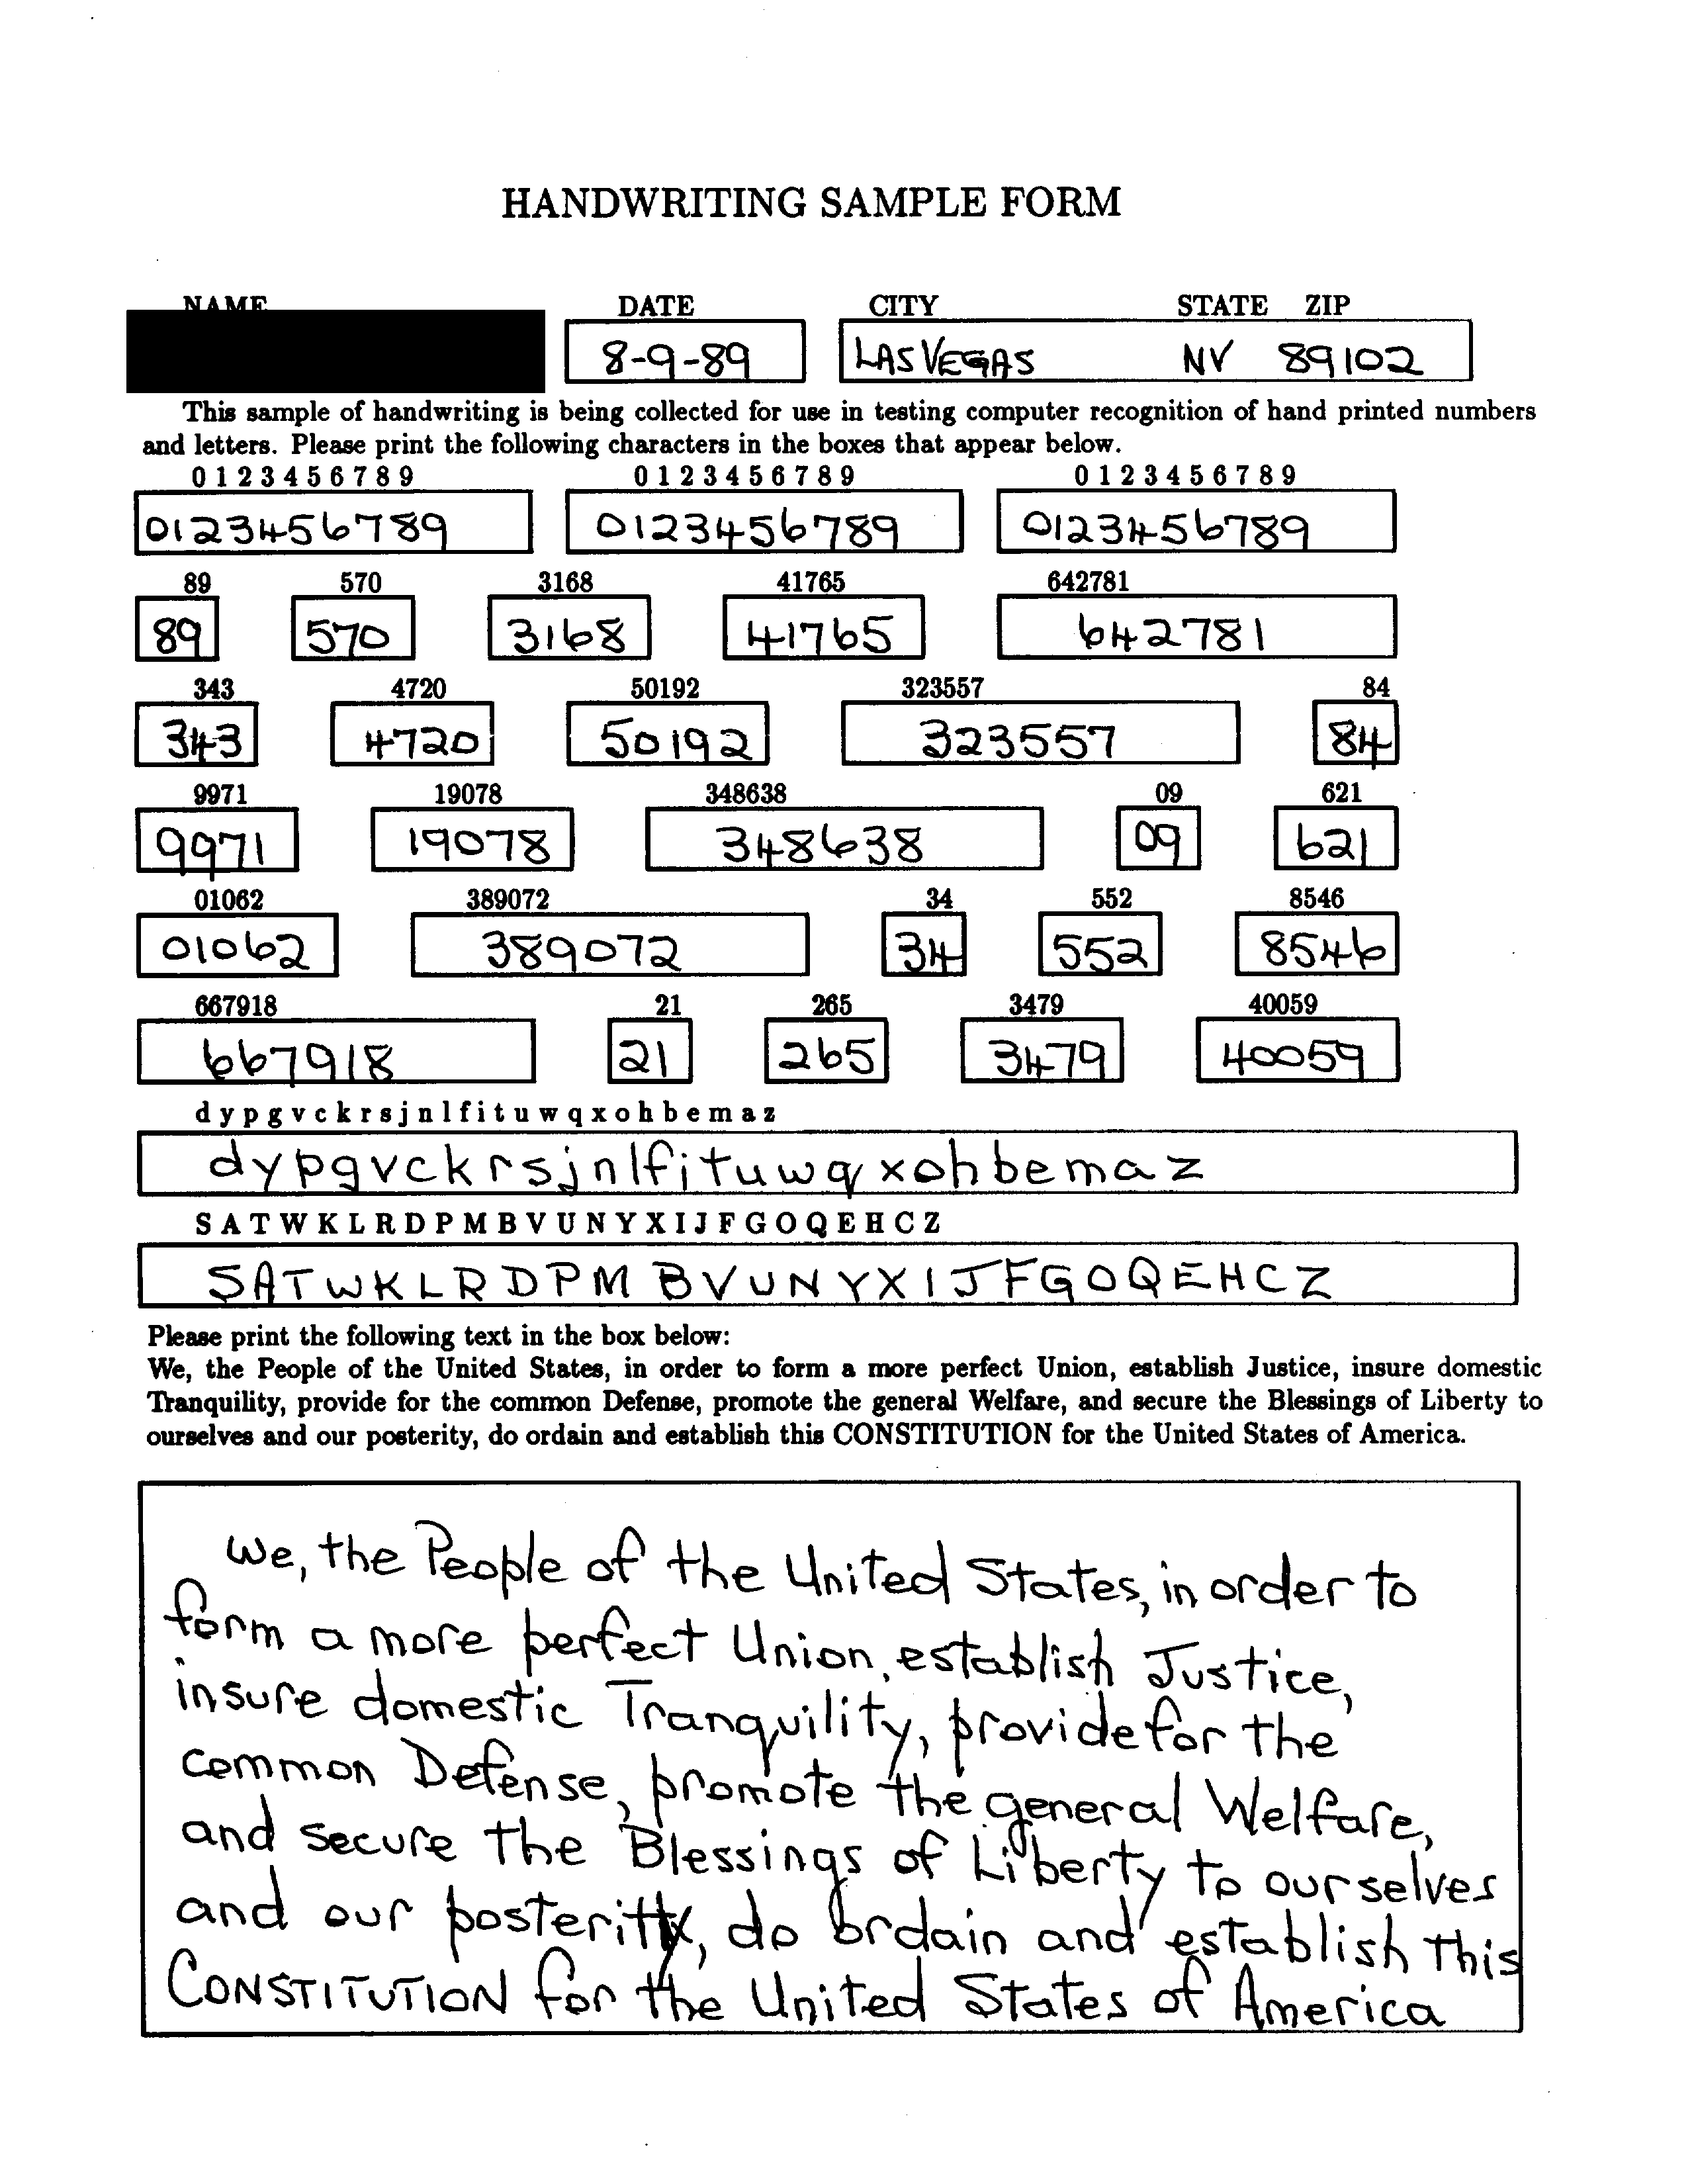 HANDWRITING SAMPLE FORM
NAME DATE CITY STATE ZIP
8-9-89 LAS VEGAS NV 89102
This sample of handwriting is being collected for use in testing computer recognition of hand printed numbers
and letters. Please print the following characters in the boxes that appear below.
0 1 2 3 4 5 6 7 8 9 0 1 2 3 4 5 6 7 8 9 0 1 2 3 4 5 6 7 8 9
0123456789 0123456789 0123456789
89 570 3168 41765 642781
89 570 3168 41765 642781
343 4720 50192 323557 84
343 4720 50192 323557 84
9971 19078 348638 09 621
9971 19078 348638 09 621
01062 389072 34 552 8546
01062 389072 34 552 8546
667918 21 265 3479 40059
667918 21 265 3479 40059
d y p g v c k r s j n l f i t u w q x o h b e m a z
d y p g v c k r s j n l f i t u w q x o h b e m a z
S A T W K L R D P M B V U N Y X I J F G O Q E H C Z
S A T W K L R D P M B V U N Y X I J F G O Q E H C Z
Please print the following text in the box below:
We, the People of the United States, in order to form a more perfect Union, establish Justice, insure domestic
Tranquility, provide for the common Defense, promote the general Welfare, and secure the Blessings of Liberty to
ourselves and our posterity, do ordain and establish this CONSTITUTION for the United States of America.
We, the People of the United States, in order to
form a more perfect Union, establish Justice,
insure domestic Tranquility, provide for the
common Defense, promote the general Welfare,
and secure the Blessings of Liberty to ourselves
and our posterity, do ordain and establish this
CONSTITUTION for the United States of America